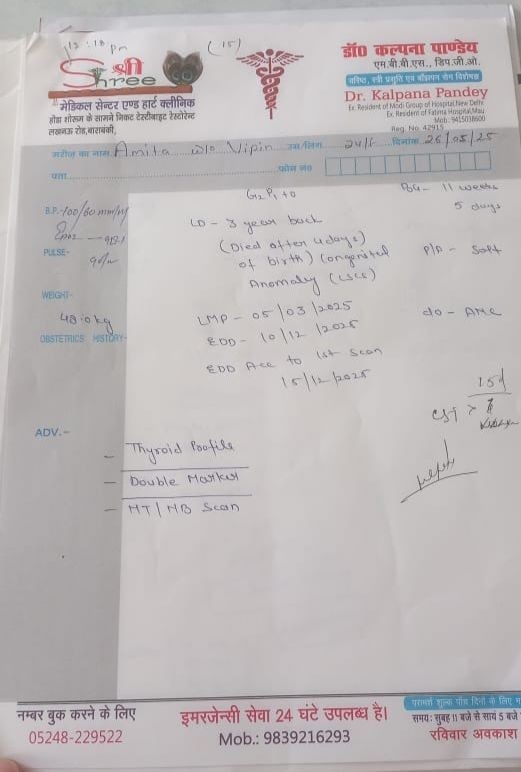 12:18 Pm
(15)
श्री
Shree
मेडिकल सेन्टर एण्ड हार्ट क्लीनिक
होण्डा शोरूम के सामने निकट टेस्टीबाइट रेस्टोरेन्ट
लखनऊ रोड, बाराबंकी,
डॉ0 कल्पना पाण्डेय
एम.बी.बी.एस., डिप.जी.ओ.
वरिष्ठ, स्त्री प्रसूति एवं बाँझपन रोग विशेषज्ञ
Dr. Kalpana Pandey
Ex. Resident of Modi Group of Hospital, New Delhi
Ex. Resident of Fatima Hospital, Mau
Mob: 9415038600
Reg. No. 42915
मरीज का नाम Amita w/o Vipin उम्र/लिंग 24/F दिनांक 26/05/25
पता फोन न0
G2P1+0
POG- 11 weeks
5 days
B.P.- 100/60 mm/Hg
SPO2 — 98%
PULSE- 90/m
WEIGHT- 48.0 kg
OBSTETRICS HISTORY-
LD - 3 year back
(Died after 4 days
of birth) Congenital
Anomaly (LSCS)
P/A - Soft
LMP - 05/03/2025
EDD - 10/12/2025
c/o - AMC
EDD Acc to 1st Scan
15/12/2025
ADV.-
- Thyroid Profile
- Double Marker
- NT/NB Scan
नम्बर बुक करने के लिए
05248-229522
इमरजेन्सी सेवा 24 घंटे उपलब्ध है।
Mob.: 9839216293
परामर्श शुल्क पाँच दिनों के लिए
समय: सुबह 11 बजे से सायं 5 बजे
रविवार अवकाश